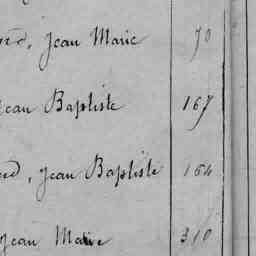 Jean Marie 70
Jean Baptiste 167
Jean Baptiste 164
Jean Marie 310